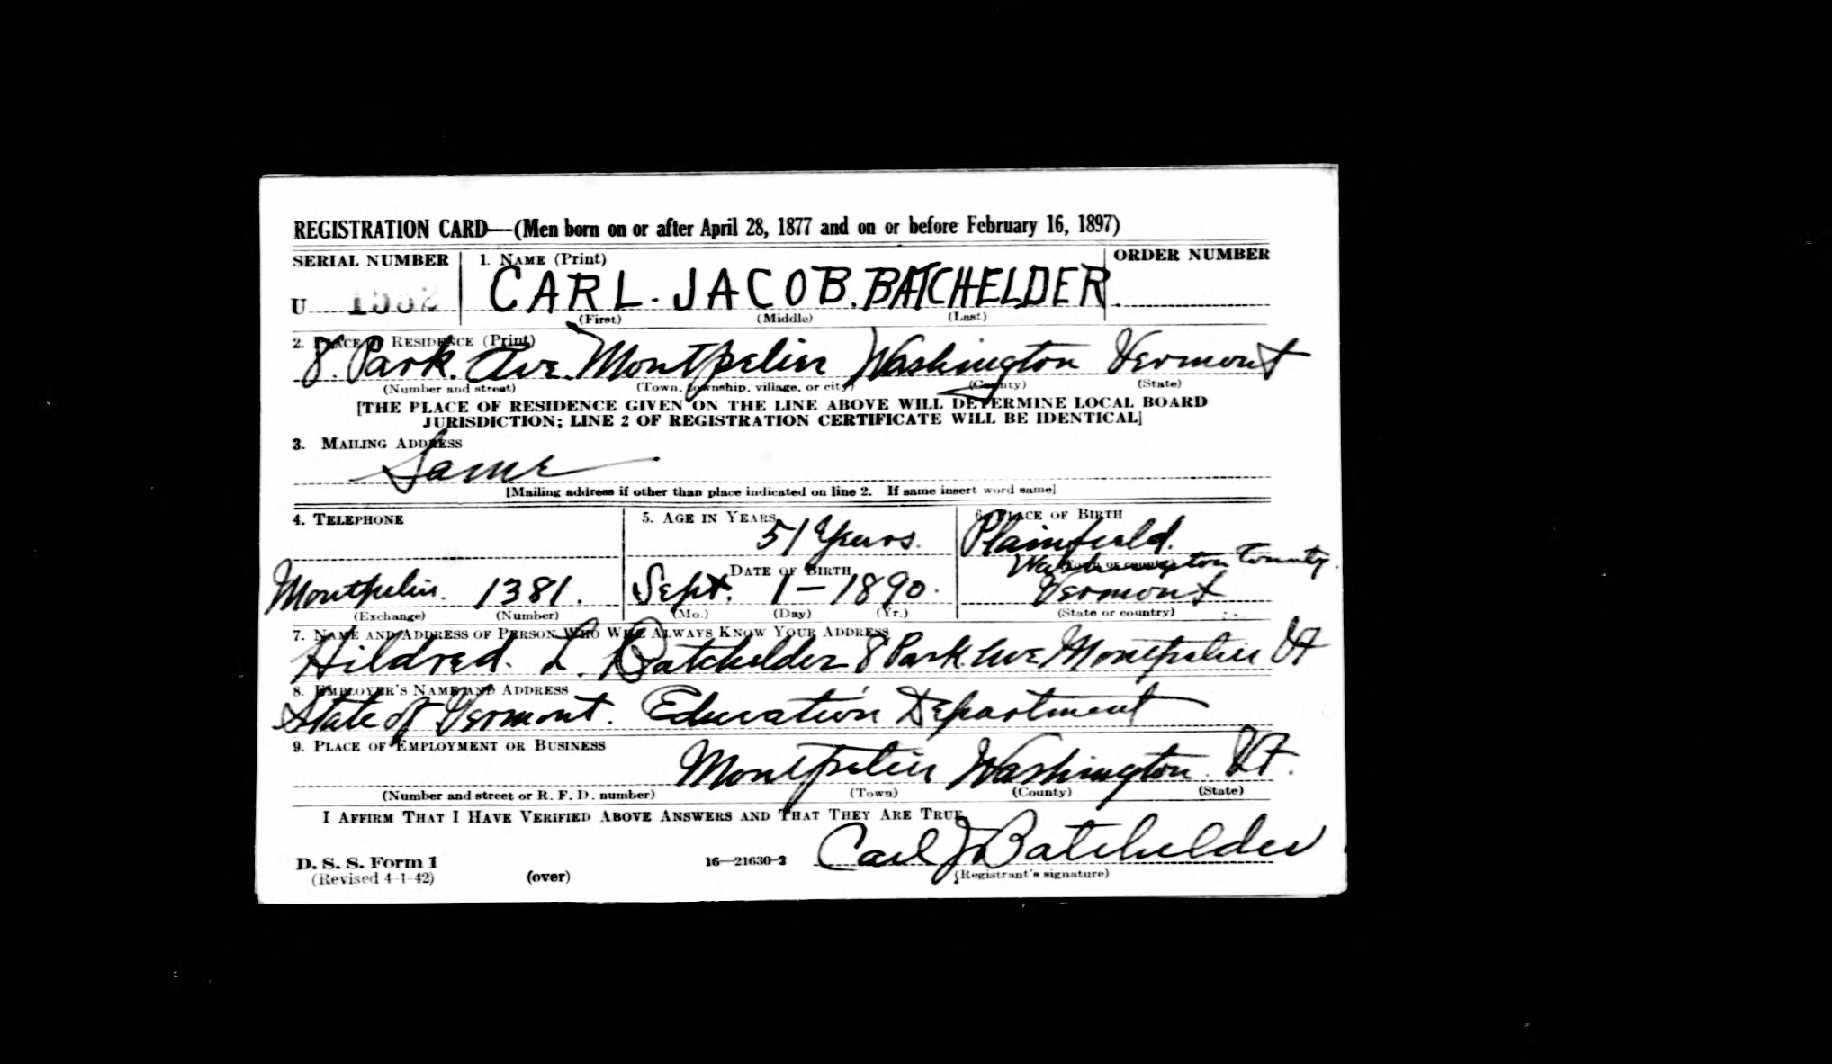 REGISTRATION CARD—(Men born on or after April 28, 1877 and on or before February 16, 1897)
SERIAL NUMBER 1. NAME (Print) ORDER NUMBER
U CARL. JACOB. BATCHELDER
(First) (Middle) (Last)
2. PLACE OF RESIDENCE (Print)
8. Park. Ave. Montpelier Washington Vermont
(Number and street) (Town, township, village, or city) (County) (State)
[THE PLACE OF RESIDENCE GIVEN ON THE LINE ABOVE WILL DETERMINE LOCAL BOARD
JURISDICTION; LINE 2 OF REGISTRATION CERTIFICATE WILL BE IDENTICAL]
3. MAILING ADDRESS
Same
[Mailing address if other than place indicated on line 2. If same insert word same]
4. TELEPHONE 5. AGE IN YEARS 6. PLACE OF BIRTH
51 Years. Plainfield.
DATE OF BIRTH Washington County.
Montpelier. 1381. Sept. 1–1890. Vermont
(Exchange) (Number) (Mo.) (Day) (Yr.) (State or country)
7. NAME AND ADDRESS OF PERSON WHO WILL ALWAYS KNOW YOUR ADDRESS
Hildred. L. Batchelder 8 Park. Ave Montpelier Vt
8. EMPLOYER'S NAME AND ADDRESS
State of Vermont. Education Department
9. PLACE OF EMPLOYMENT OR BUSINESS
Montpelier Washington. Vt.
(Number and street or R. F. D. number) (Town) (County) (State)
I AFFIRM THAT I HAVE VERIFIED ABOVE ANSWERS AND THAT THEY ARE TRUE.
Carl J. Batchelder
D. S. S. Form 1 16—21630-2
(Revised 4-1-42) (over) (Registrant's signature)